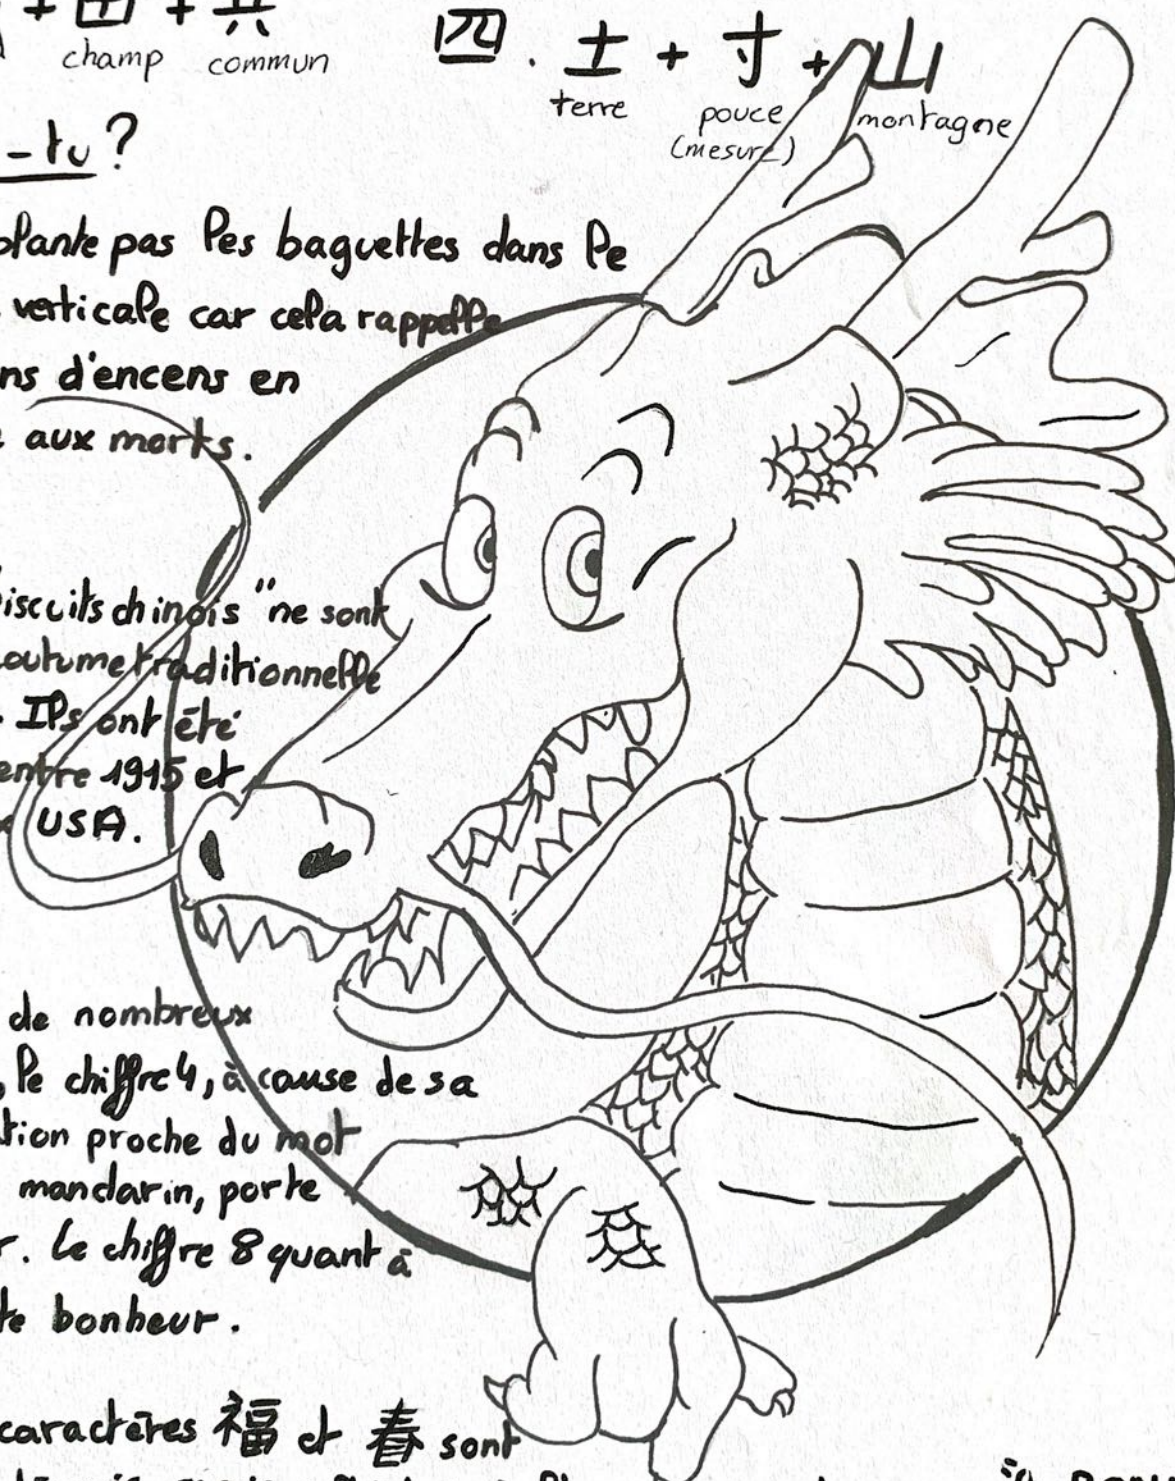 + 田 + 共
champ commun
四. 土 + 寸 + 山
terre pouce (mesure) montagne
-tu ?
plante pas les baguettes dans le
verticale car cela rappelle
ns d'encens en
aux morts.
iscuits chinois" ne sont
outume traditionnelle
. Ils ont été
entre 1915 et
USA.
de nombreux
, le chiffre 4, à cause de sa
tion proche du mot
mandarin, porte
r. Le chiffre 8 quant à
te bonheur.
caractères 福 et 春 sont